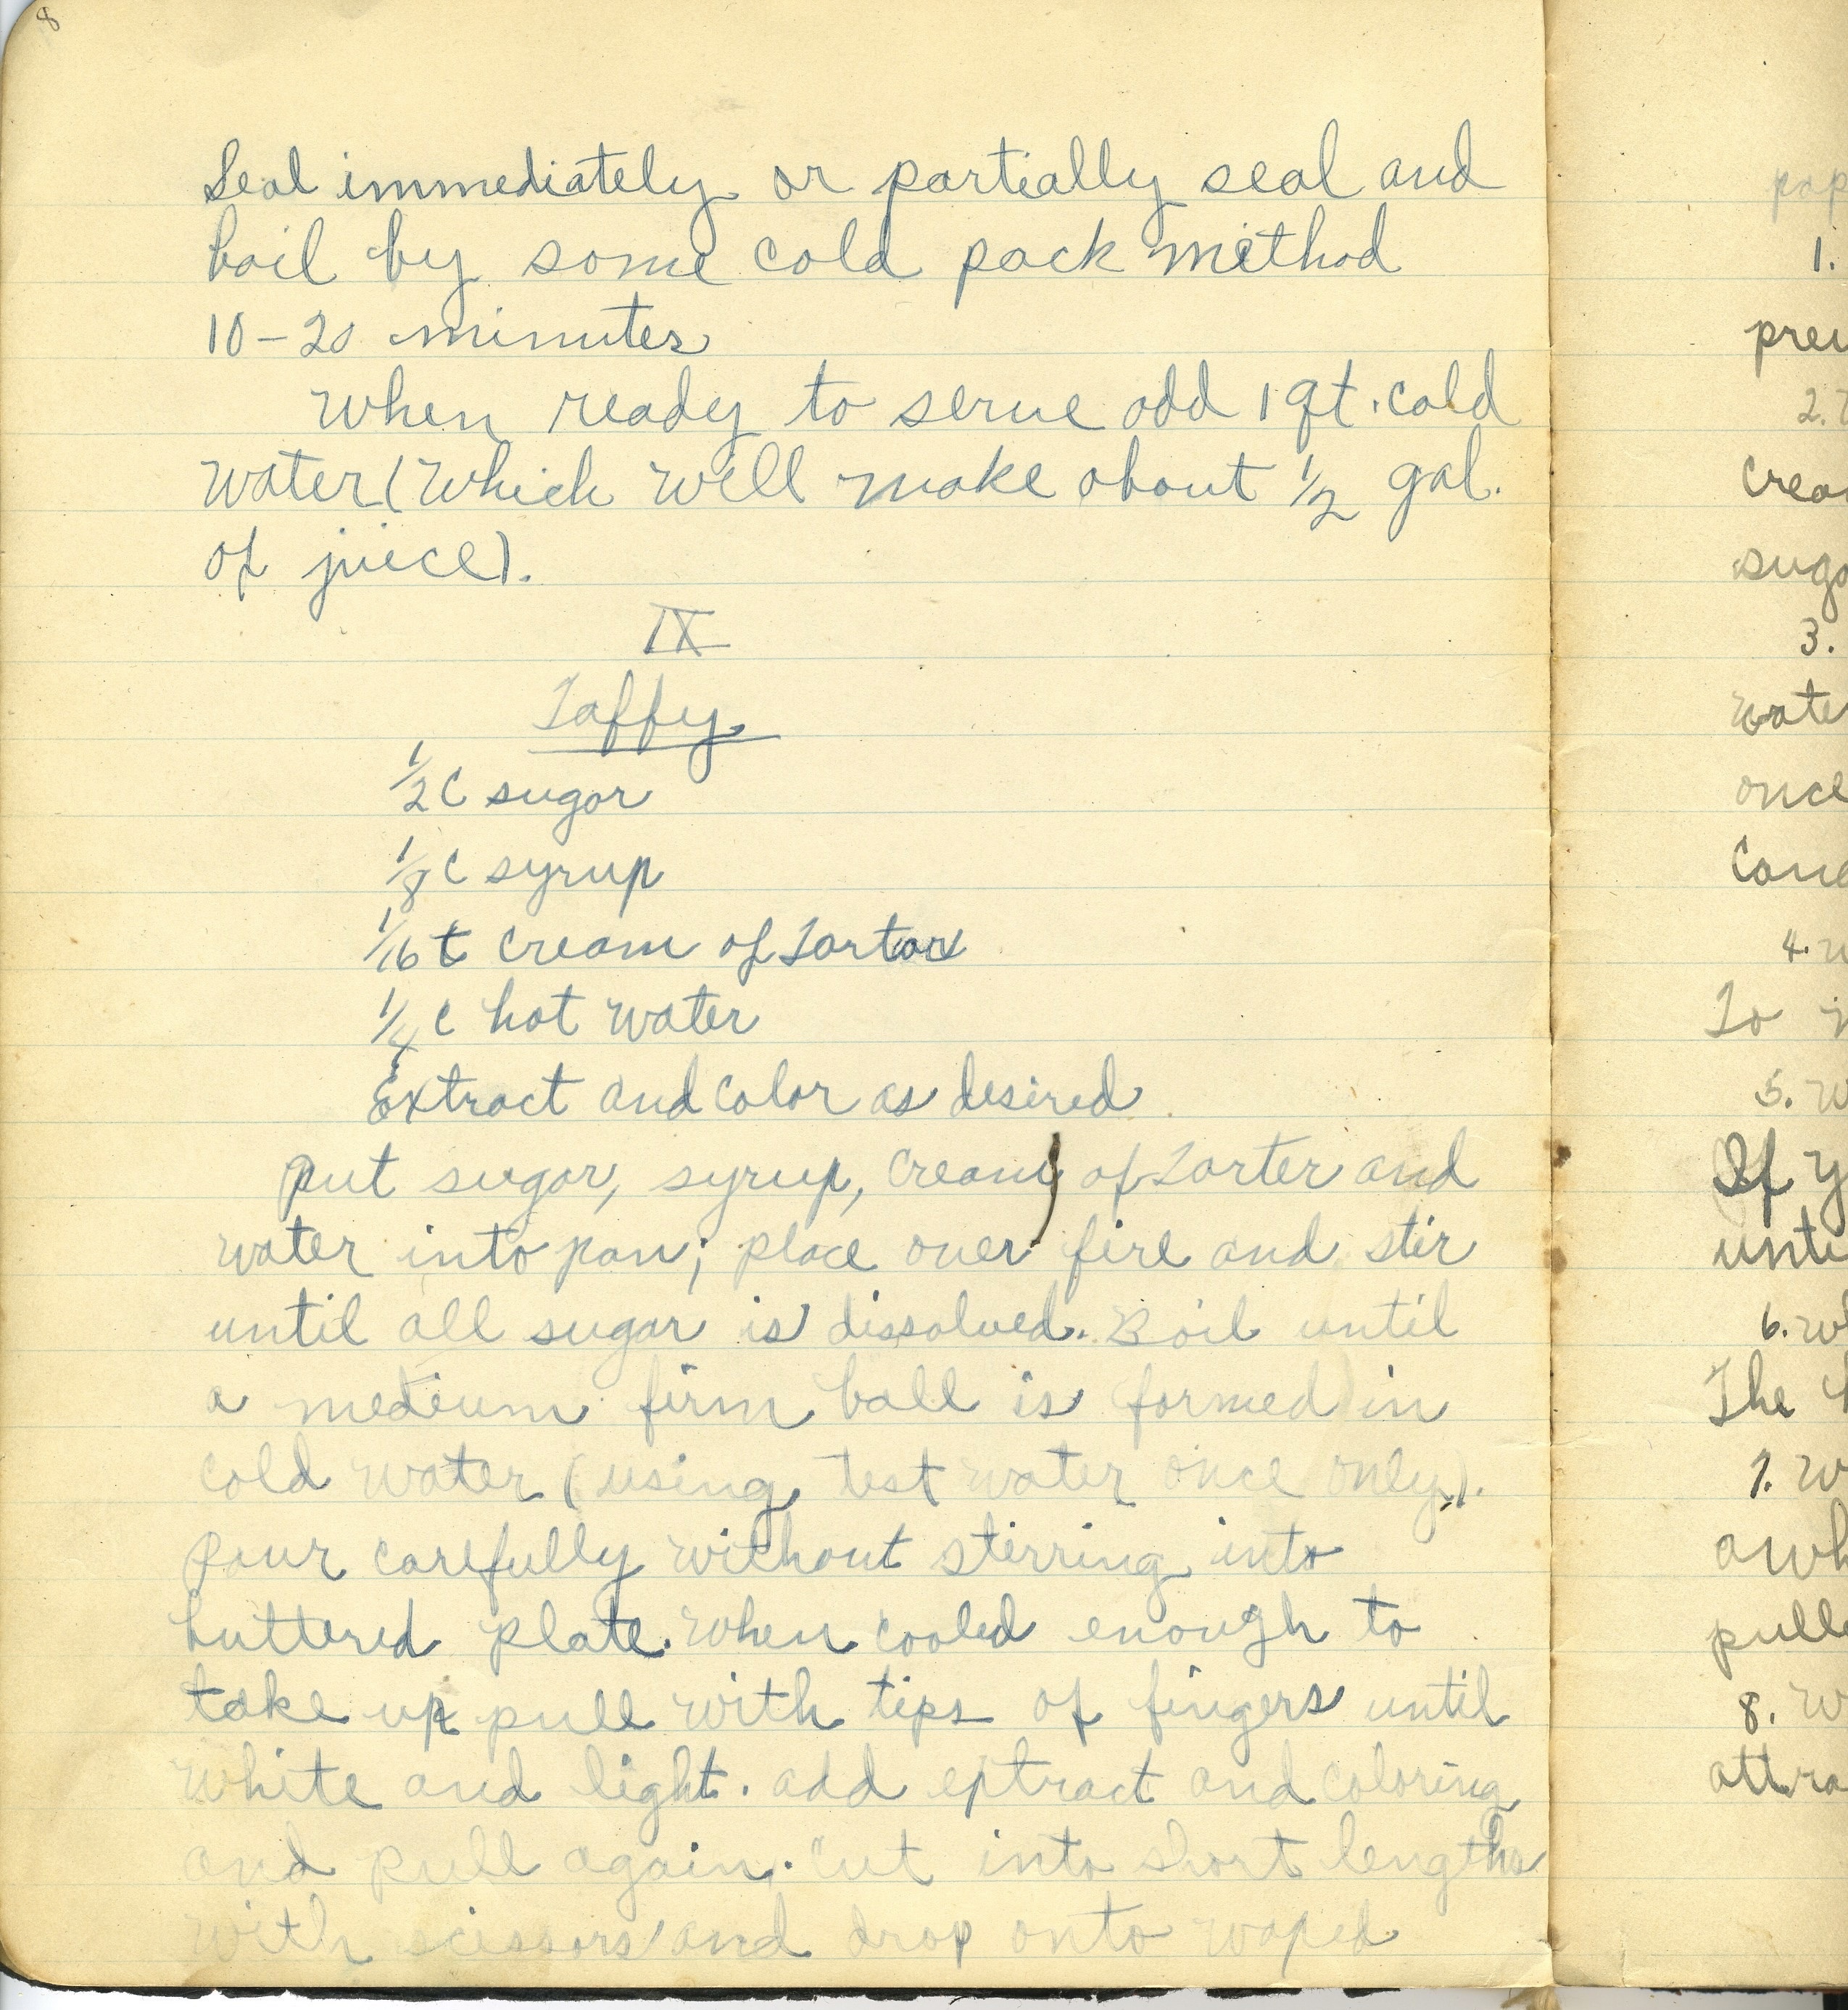 8
Seal immediately or partially seal and
boil by some cold pack method
10-20 minutes
When ready to serve add 1 qt. cold
water (which will make about 1/2 gal.
of juice).
IX
Taffy
1/2 C sugar
1/8 C syrup
1/16 t cream of Tartar
1/4 c hot water
Extract and color as desired
Put sugar, syrup, cream of Tarter and
water into pan; place over fire and stir
until all sugar is dissolved. Boil until
a medium firm ball is formed in
cold water (using test water once only).
Pour carefully without stirring into
buttered plate. When cooled enough to
take up pull with tips of fingers until
white and light. add extract and coloring
and pull again. Cut into short lengths
with scissors and drop onto waped
pap
1.
prev
2.
crea
suga
3.
wate
once
Cand
4. w
To
5. w
If y
unti
6. wh
The
7. w
awh
pulle
8. w
attra